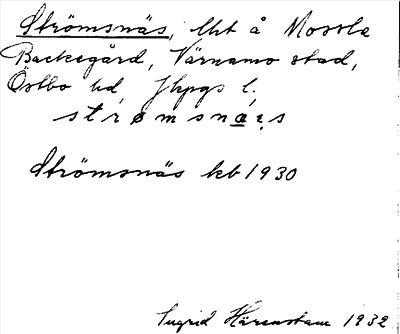 Strömsnäs, lht å Mossle
Backegård, Värnamo stad,
Östbo hd Jkpgs l.
strømsnæs
Strömsnäs kb 1930
Ingrid Härenstam 1932